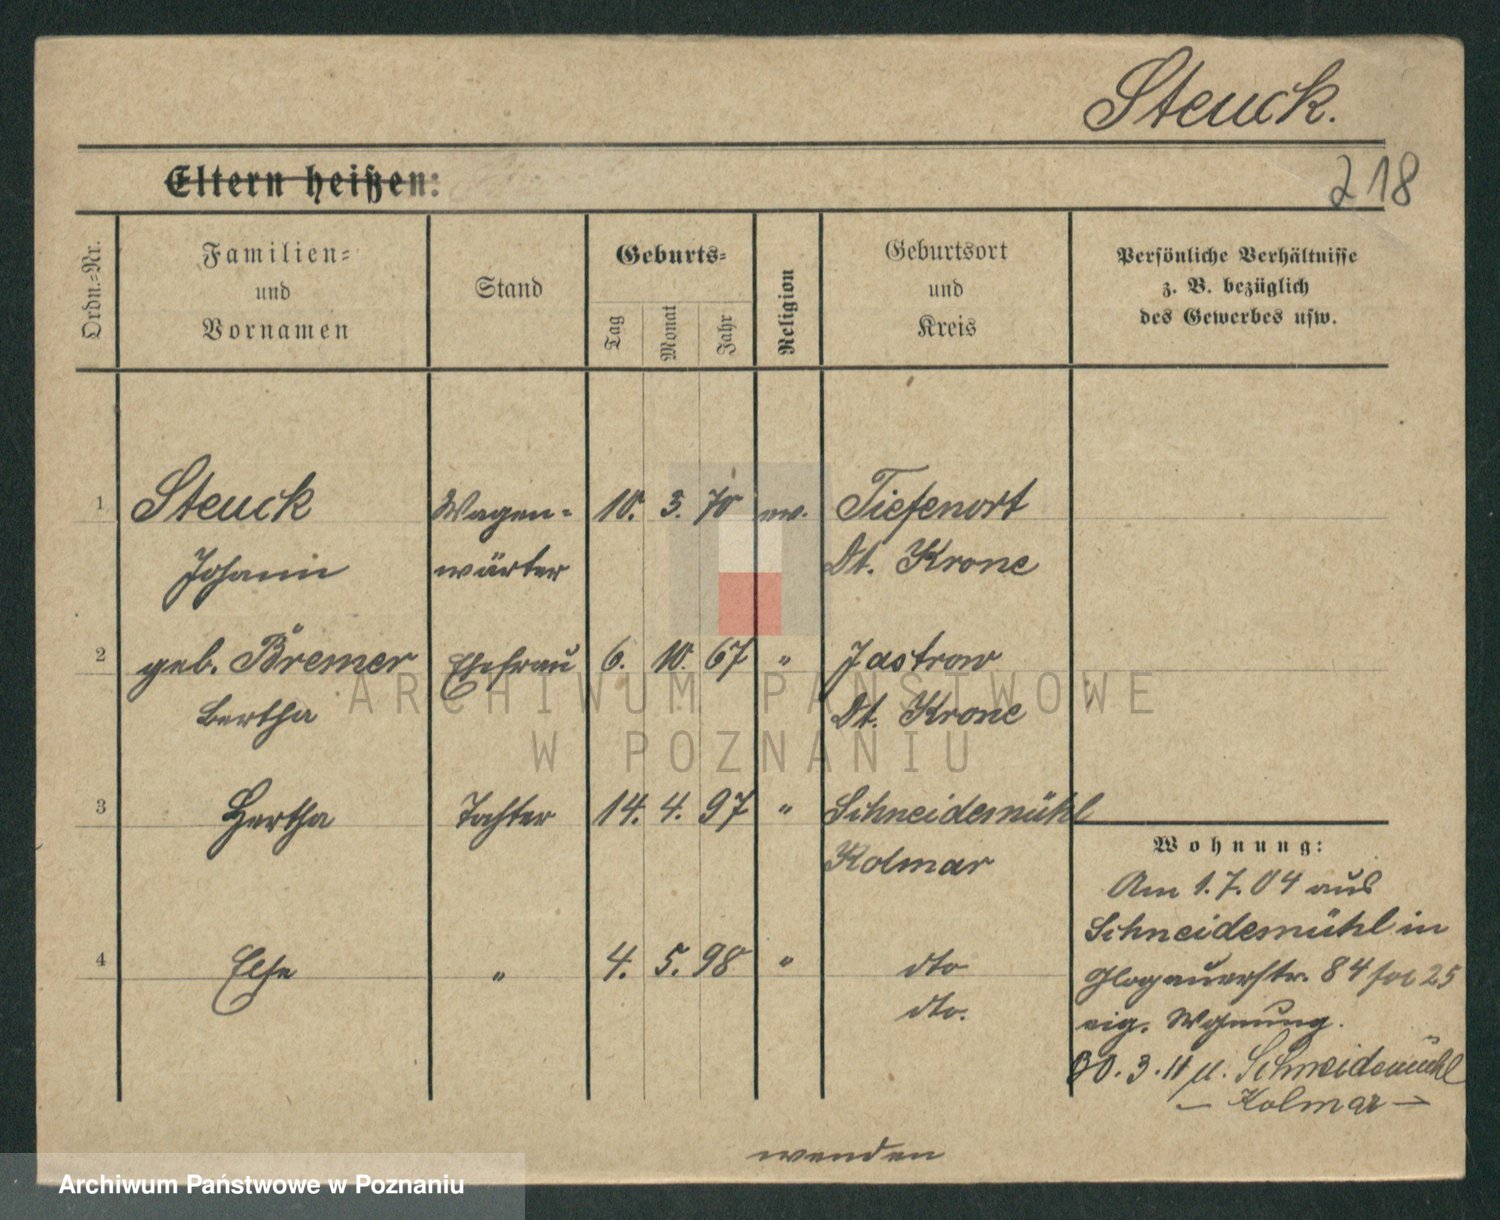 Steuck.
Eltern heißen:
218
Ordn.-Nr.
Familien-
und
Vornamen
Stand
Geburts-
Tag
Monat
Jahr
Religion
Geburtsort
und
Kreis
Persönliche Verhältnisse
z. B. bezüglich
des Gewerbes usw.
1 Steuck Wagen- 10. 3. 70 ev. Tiefenort
Johann wärter Dt. Krone
2 geb. Bremer Ehefrau 6. 10. 67 " Jastrow
Bertha Dt. Krone
3 Hertha Tochter 14. 4. 97 " Schneidemühl
Kolmar
4 Else " 4. 5. 98 " dto
dto.
Wohnung:
Am 1.7.04 aus
Schneidemühl in
Glogauerstr. 84 25
eig. Wohnung.
30.3.11 n. Schneidemühl
– Kolmar –
wenden
ARCHIWUM PAŃSTWOWE
W POZNANIU
Archiwum Państwowe w Poznaniu